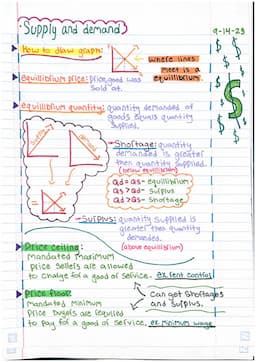 Supply and demand
9-14-23
How to draw graph:
where lines
meet is a
equilibrium.
equilibrium price: price good was
sold at.
equilibrium quantity: quantity demanded of
goods equals quantity
supplied.
supply
demand
Shortage: quantity
demanded is greater
then quantity supplied.
(below equilibrium)
Qd = Qs - equilibrium
Qs > Qd - surplus
Qd > Qs - shortage
Surplus: quantity supplied is
greater than quantity
demanded.
(above equilibrium)
Price ceiling:
mandated maximum
price sellers are allowed
to charge for a good of service. ex. rent control
Price floor:
mandated minimum
price buyers are required
to pay for a good of service. ex. minimum wage
Can get shortages
and surplus.